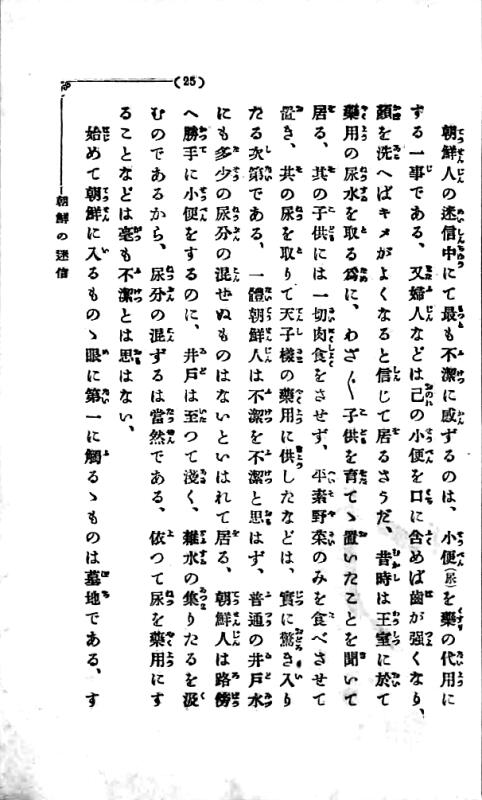 (25)
朝鮮の迷信
朝鮮人の迷信中にて最も不潔に感ずるのは、小便(尿)を藥の代用に
する一事である、又婦人などは己の小便を口に含めば齒が強くなり、
顏を洗へばキメがよくなると信じて居るさうだ、昔時は王室に於て
藥用の尿水を取る爲に、わざ〱子供を育てゝ置いたことを聞いて
居る、其の子供には一切肉食をさせず、平素野菜のみを食べさせて
置き、其の尿を取りて天子樣の藥用に供したなどは、實に驚き入り
たる次第である、一體朝鮮人は不潔を不潔と思はず、普通の井戸水
にも多少の尿分の混ぜぬものはないといはれて居る、朝鮮人は路傍
へ勝手に小便をするのに、井戸は至つて淺く、雜水の集りたるを汲
むのであるから、尿分の混ずるは當然である、依つて尿を藥用にす
ることなどは毫も不潔とは思はない、
始めて朝鮮に入るものゝ眼に第一に觸るゝものは墓地である、す